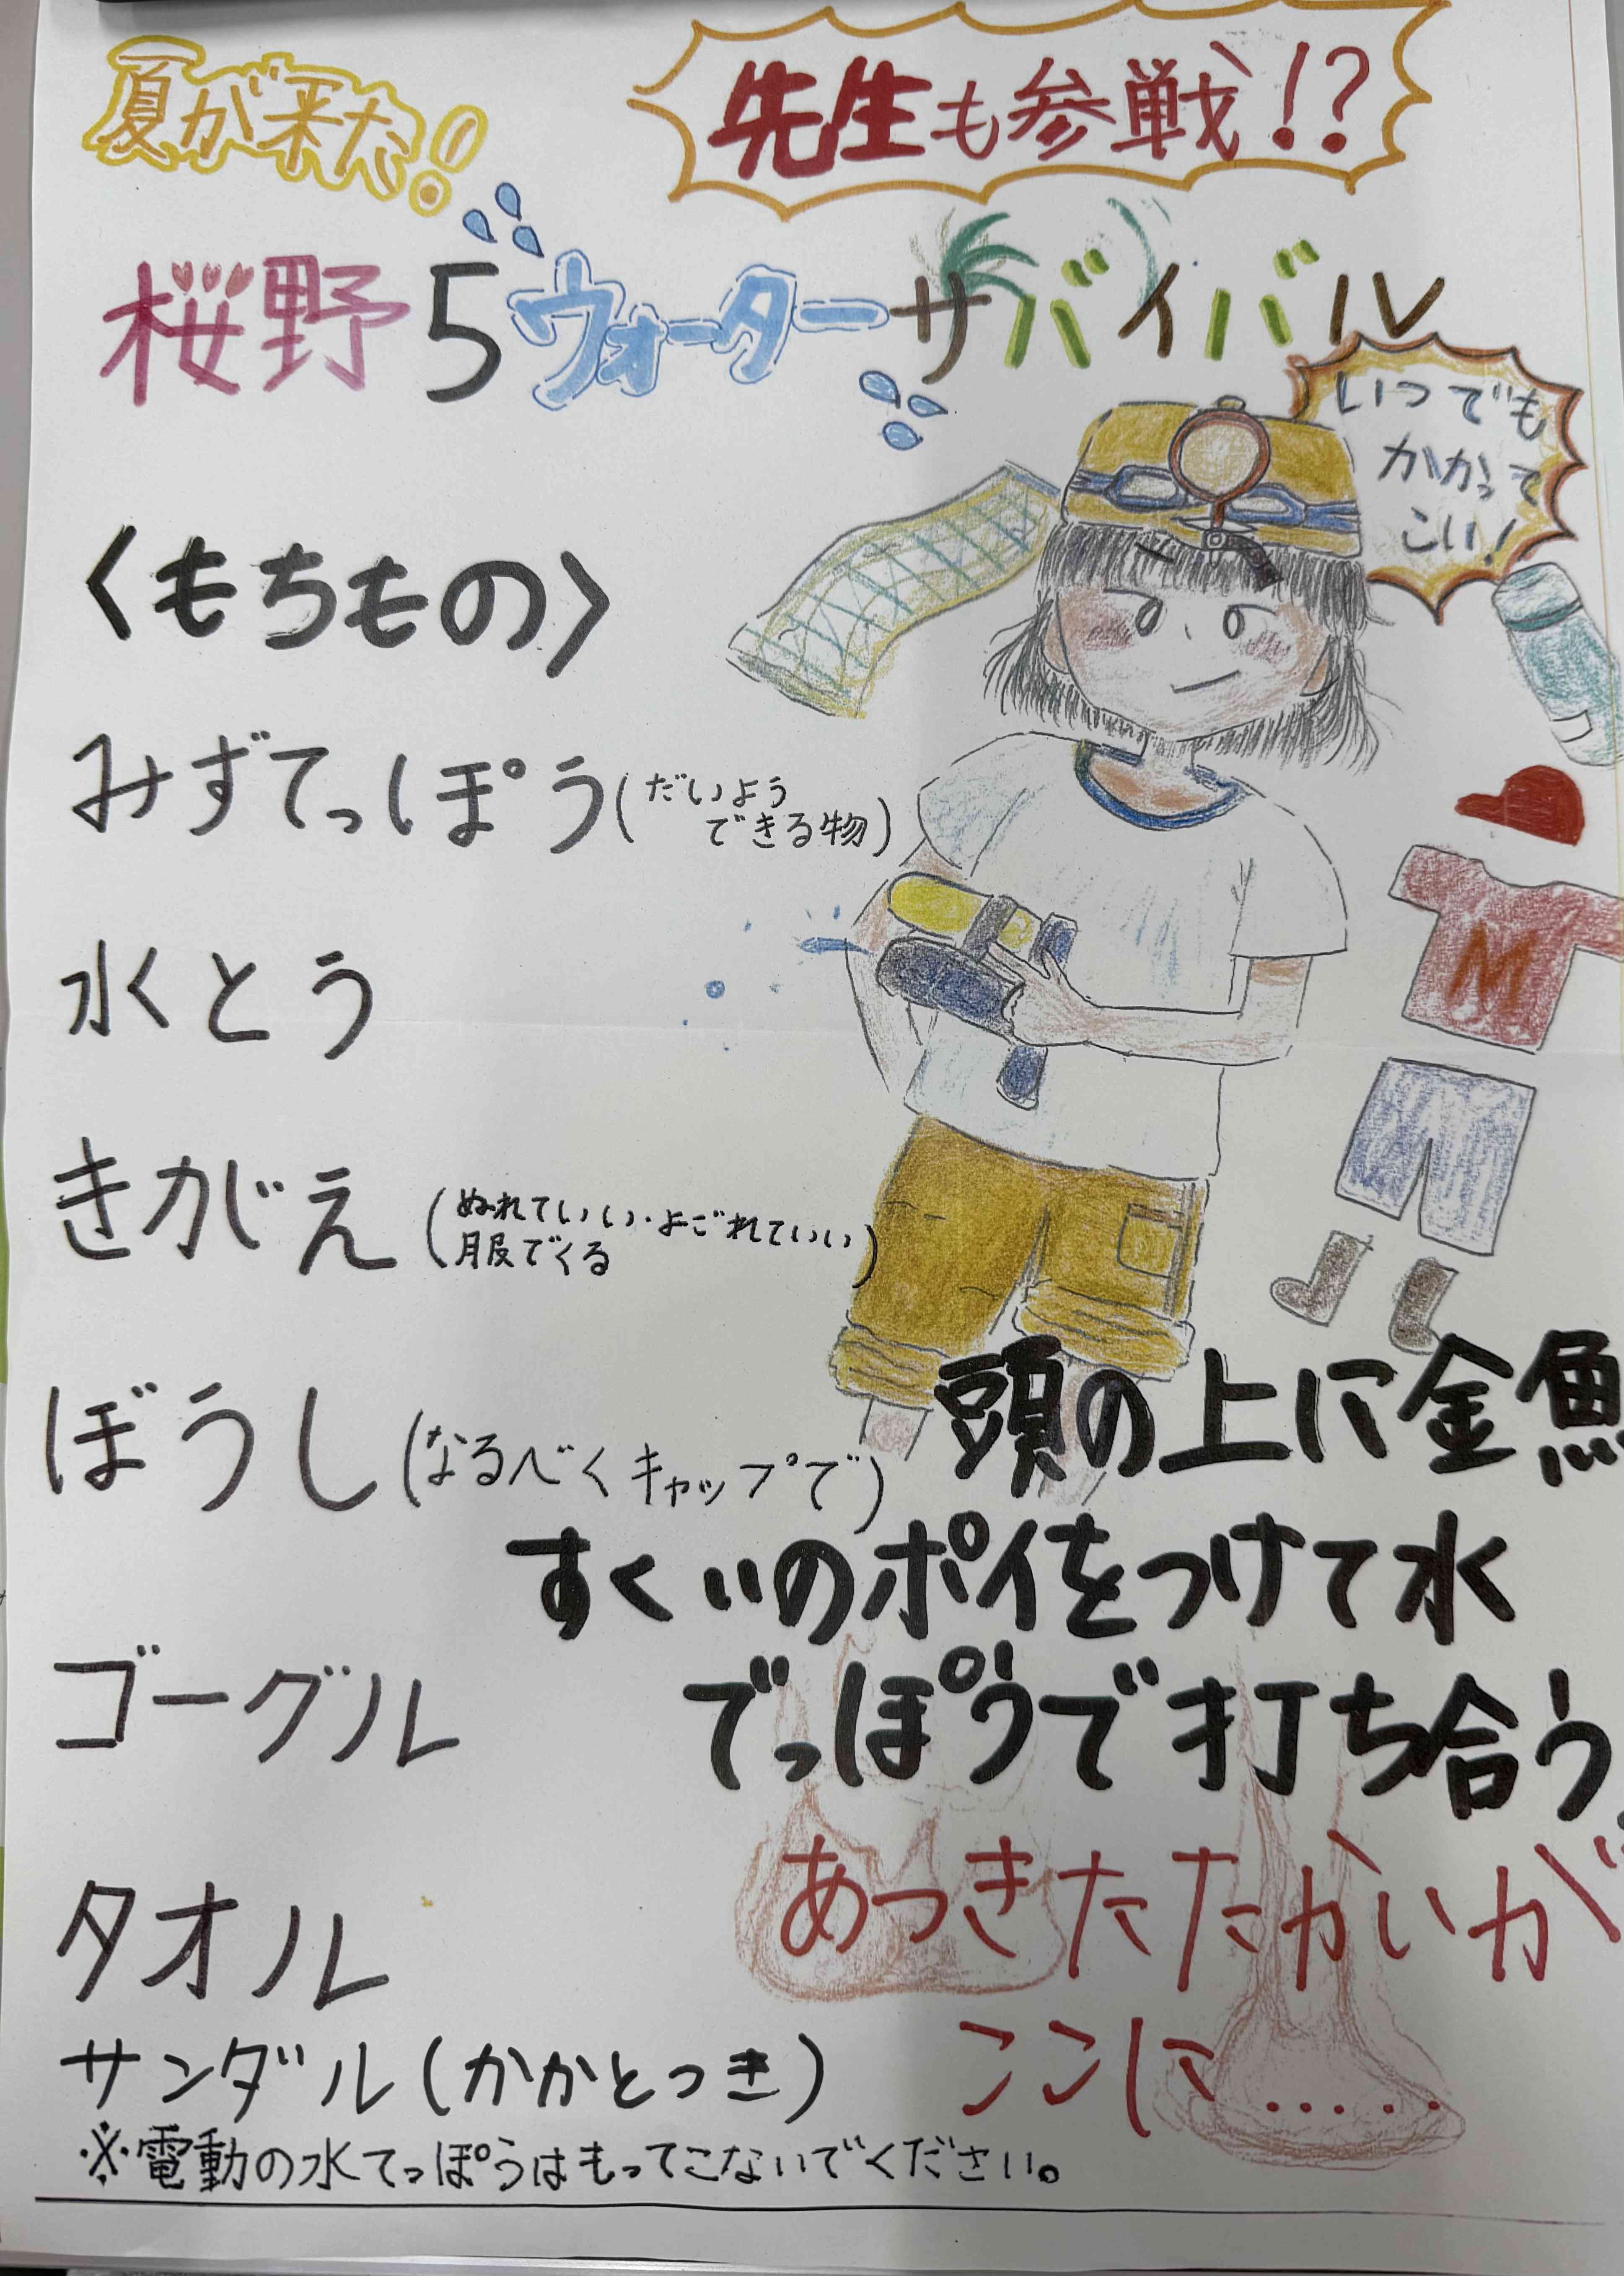 夏が来た!
先生も参戦!?
桜野5ウォーターサバイバル
いつでも
かかって
こい!
〈もちもの〉
みずてっぽう(だいよう
できる物)
水とう
きがえ(ぬれていい・よごれていい
服でくる)
ぼうし(なるべくキャップで)
ゴーグル
タオル
サンダル(かかとつき)
※電動の水てっぽうはもってこないでください。
M
頭の上に金魚
すくいのポイをつけて水
でっぽうで打ち合う
あつきたたかいが
ここに……